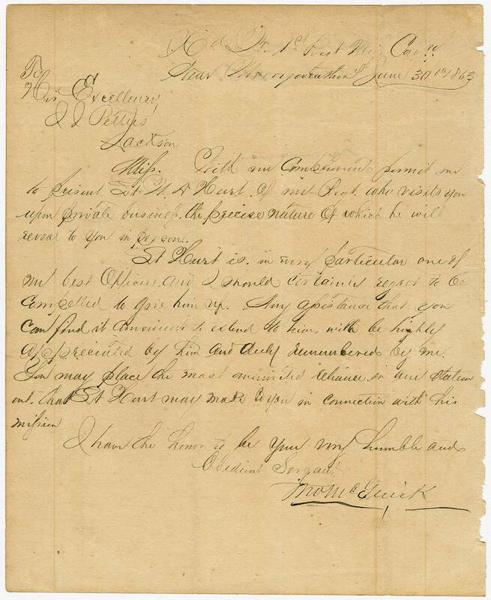 Hd Qrs 1st Batt Miss Cavy
Near June 30th 1863
To
His Excellency
J J Pettus
Jackson
Miss. With my Compliments permit me
to present Lt W D Hurt, of my Batt. who visits you
upon private business, the precise nature of which he will
reveal to you in person.
Lt Hurt is, in every particular one of
my best Officers, and I should certainly regret to be
Compelled to give him up. Any assistance that you
Can find it convenient to extend to him will be highly
appreciated by him and duly remembered by me.
You may place the most unlimited reliance in any Statem
ent, that Lt Hurt may make to you in connection with his
mission
I have the honor to be Your very humble and
Obedient Servant